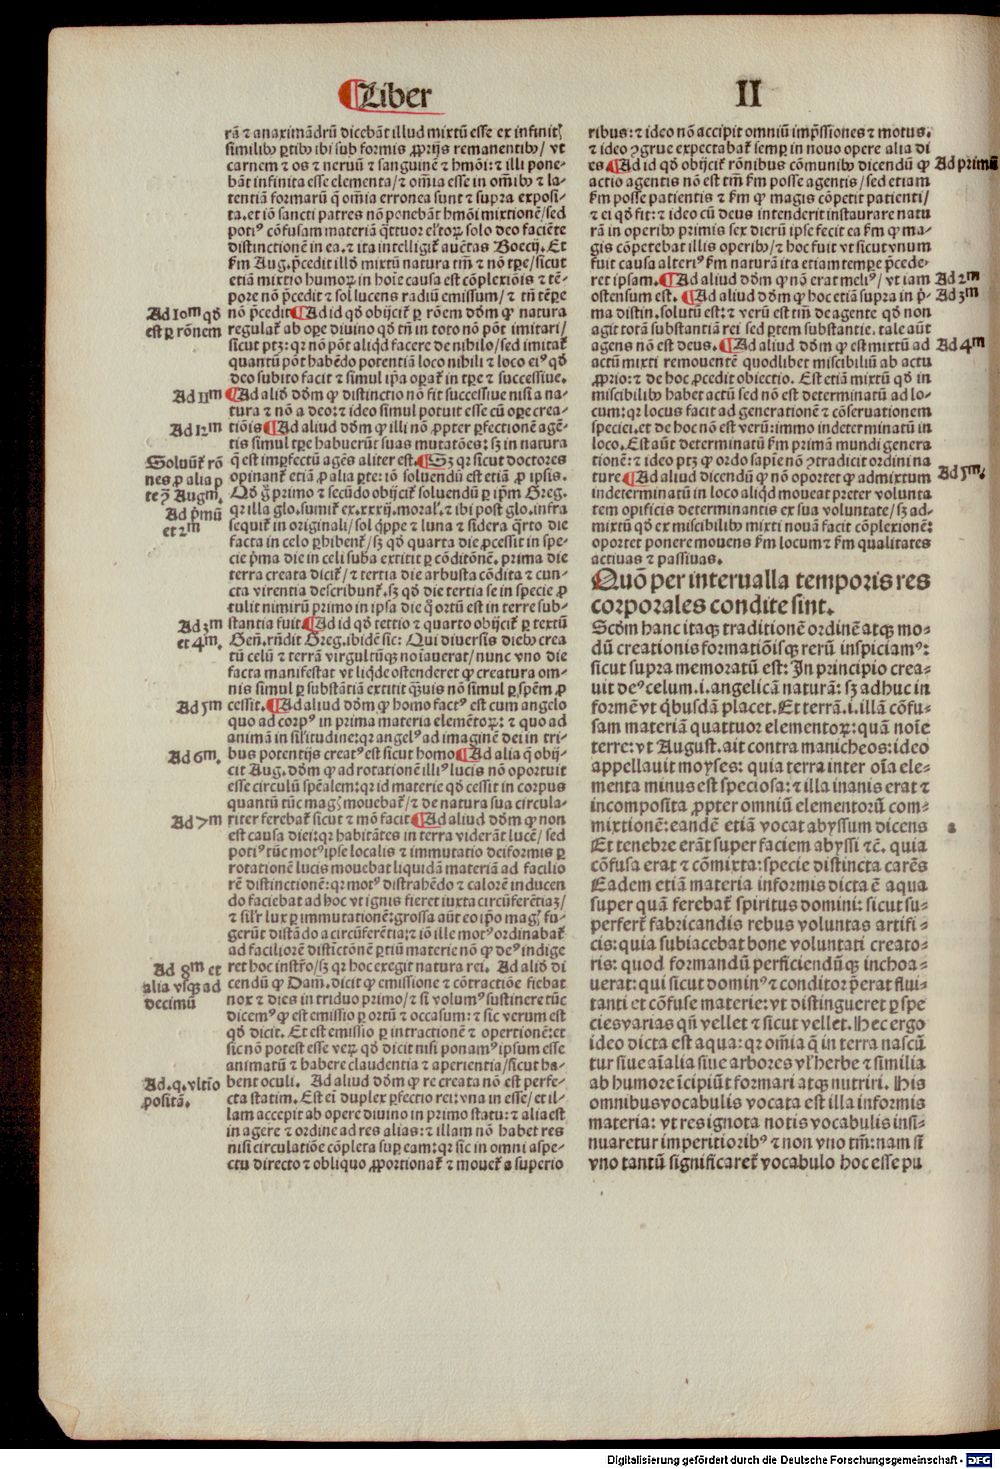 Liber
II
rã ⁊ anaximãdrũ dicebãt illud mixtũ esse ex infinitꝭ
similibꝰ ꝑtibꝰ ibi sub formis ꝓprijs remanentibꝰ/ vt
carnem ⁊ os ⁊ neruũ ⁊ sanguinẽ ⁊ hmõi: ⁊ illi pone-
bãt infinita esse elementa/ ⁊ om̃ia esse in om̃ibꝰ ⁊ la-
tentiã formarũ ꝙ om̃ia erronea sunt ⁊ supra exposi-
ta. et iõ sancti patres nõ ponebãt hmõi mixtionẽ/ sed
potiꝰ cõfusam materiã q̃ttuor el'toꝝ solo deo faciẽte
distinctionẽ in ea. ⁊ ita intelligit̃ auc̃tas Boecij. Et
s̃m Aug. p̃cedit illđ mixtũ natura tm̃ ⁊ nõ tp̃e/ sicut
etiã mixtio humoꝝ in hoĩe causa est cõplexiõis ⁊ tẽ-
pore nõ p̃cedit ⁊ sol lucens radiũ emissum/ ⁊ tñ tẽpe
nõ p̃cedit ¶Ad id qđ obijcit̃ ꝑ rõem dõm ꝙ natura
regulat̃ ab oꝑe diuino qđ tñ in toto nõ põt imitari/
sicut ptꝫ: qꝛ nõ põt aliqđ facere de nihilo/ sed imitat̃
quantũ põt habẽdo potentiã loco nihili ⁊ loco eiꝰ qđ
deo subito facit ⁊ simul ip̃a oꝑat̃ in tp̃e ⁊ successiue.
¶Ad aliđ dõm ꝙ distinctio nõ fit successiue nisi a na-
tura ⁊ nõ a deo: ⁊ ideo simul potuit esse cũ oꝑe crea-
tiõis ¶Ad aliud dõm ꝙ illi nõ ꝓpter ꝑfectionẽ agẽ-
tis simul tp̃e habuerũt suas mutatões: sꝫ in natura
q̃ est imꝑfectũ agẽs aliter est. ¶Sꝫ qꝛ sicut doctores
opinant̃ etiã ꝓ alia ꝑte: iõ soluendũ est etiã ꝓ ipsis.
Qđ g̊ primo ⁊ secũdo obijcit̃ soluendũ ꝑ ip̃m Greg.
qꝛ illa glo. sumit̃ ex. xxxij. moral'. ⁊ ibi post glo. infra
sequit̃ in originali/ sol q̃ppe ⁊ luna ⁊ sidera q̃rto die
facta in celo ꝑhibent̃/ sꝫ qđ quarta die ꝓcessit in spe-
cie p̃ma die in celi suba extitit ꝑ cõditõnẽ. prima die
terra creata dicit̃/ ⁊ tertia die arbusta cõdita ⁊ cun-
cta virentia describunt̃. sꝫ qđ die tertia se in specie ꝓ
tulit nimirũ primo in ipsa die q̊ ortũ est in terre sub-
stantia fuit ¶Ad id qđ tertio ⁊ quarto obijcit̃ ꝑ textũ
Geñ. rñdit Greg. ibidẽ sic: Qui diuersis diebꝰ crea
tũ celũ ⁊ terrã virgultũqꝫ noĩauerat/ nunc vno die
facta manifestat vt liq̃de ostenderet ꝙ creatura om-
nis simul ꝑ substãtiã extitit q̃uis nõ simul ꝑ spẽm ꝓ
cessit. ¶Ad aliud dõm ꝙ homo factꝰ est cum angelo
quo ad corpꝰ in prima materia elemẽtoꝝ: ⁊ quo ad
animã in sil'itudine: qꝛ angelꝰ ad imaginẽ dei in tri-
bus potentijs creatꝰ est sicut homo ¶Ad alia q̃ obij-
cit Aug. dõm ꝙ ad rotationẽ illiꝰ lucis nõ oportuit
esse circulũ sp̃ealem: qꝛ id materie qđ cessit in corpus
quantũ tũc magꝭ mouebat̃/ ⁊ de natura sua circula-
riter ferebat̃ sicut ⁊ mõ facit ¶Ad aliud dõm ꝙ non
est causa diei: qꝛ habitãtes in terra viderãt lucẽ/ sed
potiꝰ tũc motꝰ ipse localis ⁊ immutatio deiformis ꝑ
rotationẽ lucis mouebat liquidã materiã ad facilio
rẽ distinctionẽ: qꝛ motꝰ distrahẽdo ⁊ calorẽ inducen
do faciebat ad hoc vt ignis fieret iuxta circũferẽtiaꝫ/
⁊ sil'r lux ꝑ immutationẽ: grossa aũt eo ip̃o magꝭ fu-
gerũt distãdo a circũferẽtia: ⁊ iõ ille motꝰ ordinabat̃
ad faciliorẽ distĩctõnẽ ꝑtiũ materie nõ ꝙ deꝰ indige
ret hoc instr̃o/ sꝫ qꝛ hoc exegit natura rei. Ad aliđ di
cendũ ꝙ Dam̃. dicit ꝙ emissione ⁊ cõtractiõe fiebat
nox ⁊ dies in triduo primo/ ⁊ si volumꝰ sustinere tũc
dicemꝰ ꝙ est emissio ꝑ ortũ ⁊ occasum: ⁊ sic verum est
qđ dicit. Et est emissio ꝑ intractionẽ ⁊ opertionẽ: et
sic non potest esse veꝝ qđ dicit nisi ponamꝰ ipsum esse
animatũ ⁊ habere claudentia ⁊ aperientia/ sicut ha-
bent oculi. Ad aliud dõm ꝙ re creata nõ est perfe-
cta statim. Est eĩ duplex ꝑfectio rei: vna in esse/ et il-
lam accepit ab opere diuino in primo statu: ⁊ alia est
in agere ⁊ ordine ad res alias: ⁊ illam nõ habet res
nisi circulatiõe cõpleta suꝑ eam: qꝛ sic in omni aspe-
ctu directo ⁊ obliquo ꝓportionat̃ ⁊ mouet̃ a superio
Ad 10m qđ
est ꝑ rõnem
Ad 11m
Ad 12m
Soluũt̃ rõ
nes ꝓ alia ꝑ
te ꝯ̃ Augm̃.
Ad p̃mũ
et 2m
Ad 3m
et 4m.
Ad 5m
Ad 6m.
Ad 7m
Ad 8m et
alia vsqꝫ ad
decimũ
Ad. q. vltĩo
ꝓpositã.
ribus: ⁊ ideo nõ accipit omniũ imp̃ssiones ⁊ motus.
⁊ ideo ꝯgrue expectabat̃ semꝑ in nouo opere alia di
es. ¶Ad id qđ obijcit̃ rõnibus cõmunibꝰ dicendũ ꝙ
actio agentis nõ est tm̃ s̃m posse agentis/ sed etiam
s̃m posse patientis ⁊ s̃m ꝙ magis cõpetit patienti/
⁊ ei qđ fit: ⁊ ideo cũ deus intenderit instaurare natu
rã in operibꝰ primis sex dierũ ipse fecit ea s̃m ꝙ ma-
gis cõpetebat illis operibꝰ/ ⁊ hoc fuit vt sicut vnum
fuit causa alteriꝰ s̃m naturã ita etiam tempe p̃cede-
ret ipsam. ¶Ad aliud dõm ꝙ nõ erat meliꝰ/ vt iam
ostensum est. ¶Ad aliud dõm ꝙ hoc etiã supra in p̃-
ma distin. solutũ est: ⁊ verũ est tm̃ de agente qđ non
agit totã substantiã rei sed ꝑtem substantie. tale aũt
agens nõ est deus. ¶Ad aliud dõm ꝙ est mixtũ ad
actũ mixti remouentẽ quodlibet miscibiliũ ab actu
ꝓprio: ⁊ de hoc ꝓcedit obiectio. Est etiã mixtũ qđ in
miscibilibꝰ habet actũ sed nõ est determinatũ ad lo-
cum: qꝛ locus facit ad generationẽ ⁊ cõseruationem
speciei. et de hoc nõ est verũ: immo indeterminatũ in
loco. Est aũt determinatũ s̃m primã mundi genera
tionẽ: ⁊ ideo ptꝫ ꝙ ordo sapĩe nõ ꝯtradicit ordini na
ture ¶Ad aliud dicendũ ꝙ nõ oportet ꝙ admixtum
indeterminatũ in loco aliqđ moueat preter volunta
tem opificis determinantis ex sua voluntate/ sꝫ ad-
mixtũ qđ ex miscibilibꝰ mixti nouã facit cõplexionẽ:
oportet ponere mouens s̃m locum ⁊ s̃m qualitates
actiuas ⁊ passiuas.
Quõ per interualla temporis res
corporales condite sint.
Scđm hanc itaqꝫ traditionẽ ordinẽ atqꝫ mo-
dũ creationis formatiõisqꝫ rerũ inspiciamꝰ:
sicut supra memoratũ est: In principio crea-
uit deꝰ celum. i. angelicã naturã: sꝫ adhuc in
formẽ vt q̃busdã placet. Et terrã. i. illã cõfu-
sam materiã quattuor elementoꝝ: quã noĩe
terre: vt August. ait contra manicheos: ideo
appellauit moyses: quia terra inter oĩa ele-
menta minus est speciosa: ⁊ illa inanis erat ⁊
incomposita ꝓpter omniũ elementorũ com-
mixtionẽ: eandẽ etiã vocat abyssum dicens
Et tenebre erãt super faciem abyssi ⁊c̃. quia
cõfusa erat ⁊ cõmixta: specie distincta carẽs
Eadem etiã materia informis dicta ẽ aqua
super quã ferebat̃ spiritus domini: sicut su-
perfert̃ fabricandis rebus voluntas artifi-
cis: quia subiacebat bone voluntati creato-
ris: quod formandũ perficiendũqꝫ inchoa-
uerat: qui sicut dominꝰ ⁊ conditor p̃erat flui-
tanti et cõfuse materie: vt distingueret ꝑ spe
cies varias qñ vellet ⁊ sicut vellet. Hec ergo
ideo dicta est aqua: qꝛ om̃ia q̃ in terra nascũ
tur siue aĩalia siue arbores vl' herbe ⁊ similia
ab humore ĩcipiũt formari atqꝫ nutriri. His
omnibus vocabulis vocata est illa informis
materia: vt res ignota notis vocabulis insi-
nuaretur imperitioribꝰ ⁊ non vno tm̃: nam si
vno tantũ significaret̃ vocabulo hoc esse pu
Ad primũ
Ad 2m
Ad 3m
Ad 4m
Ad 5m.
Digitalisierung gefördert durch die Deutsche Forschungsgemeinschaft - DFG